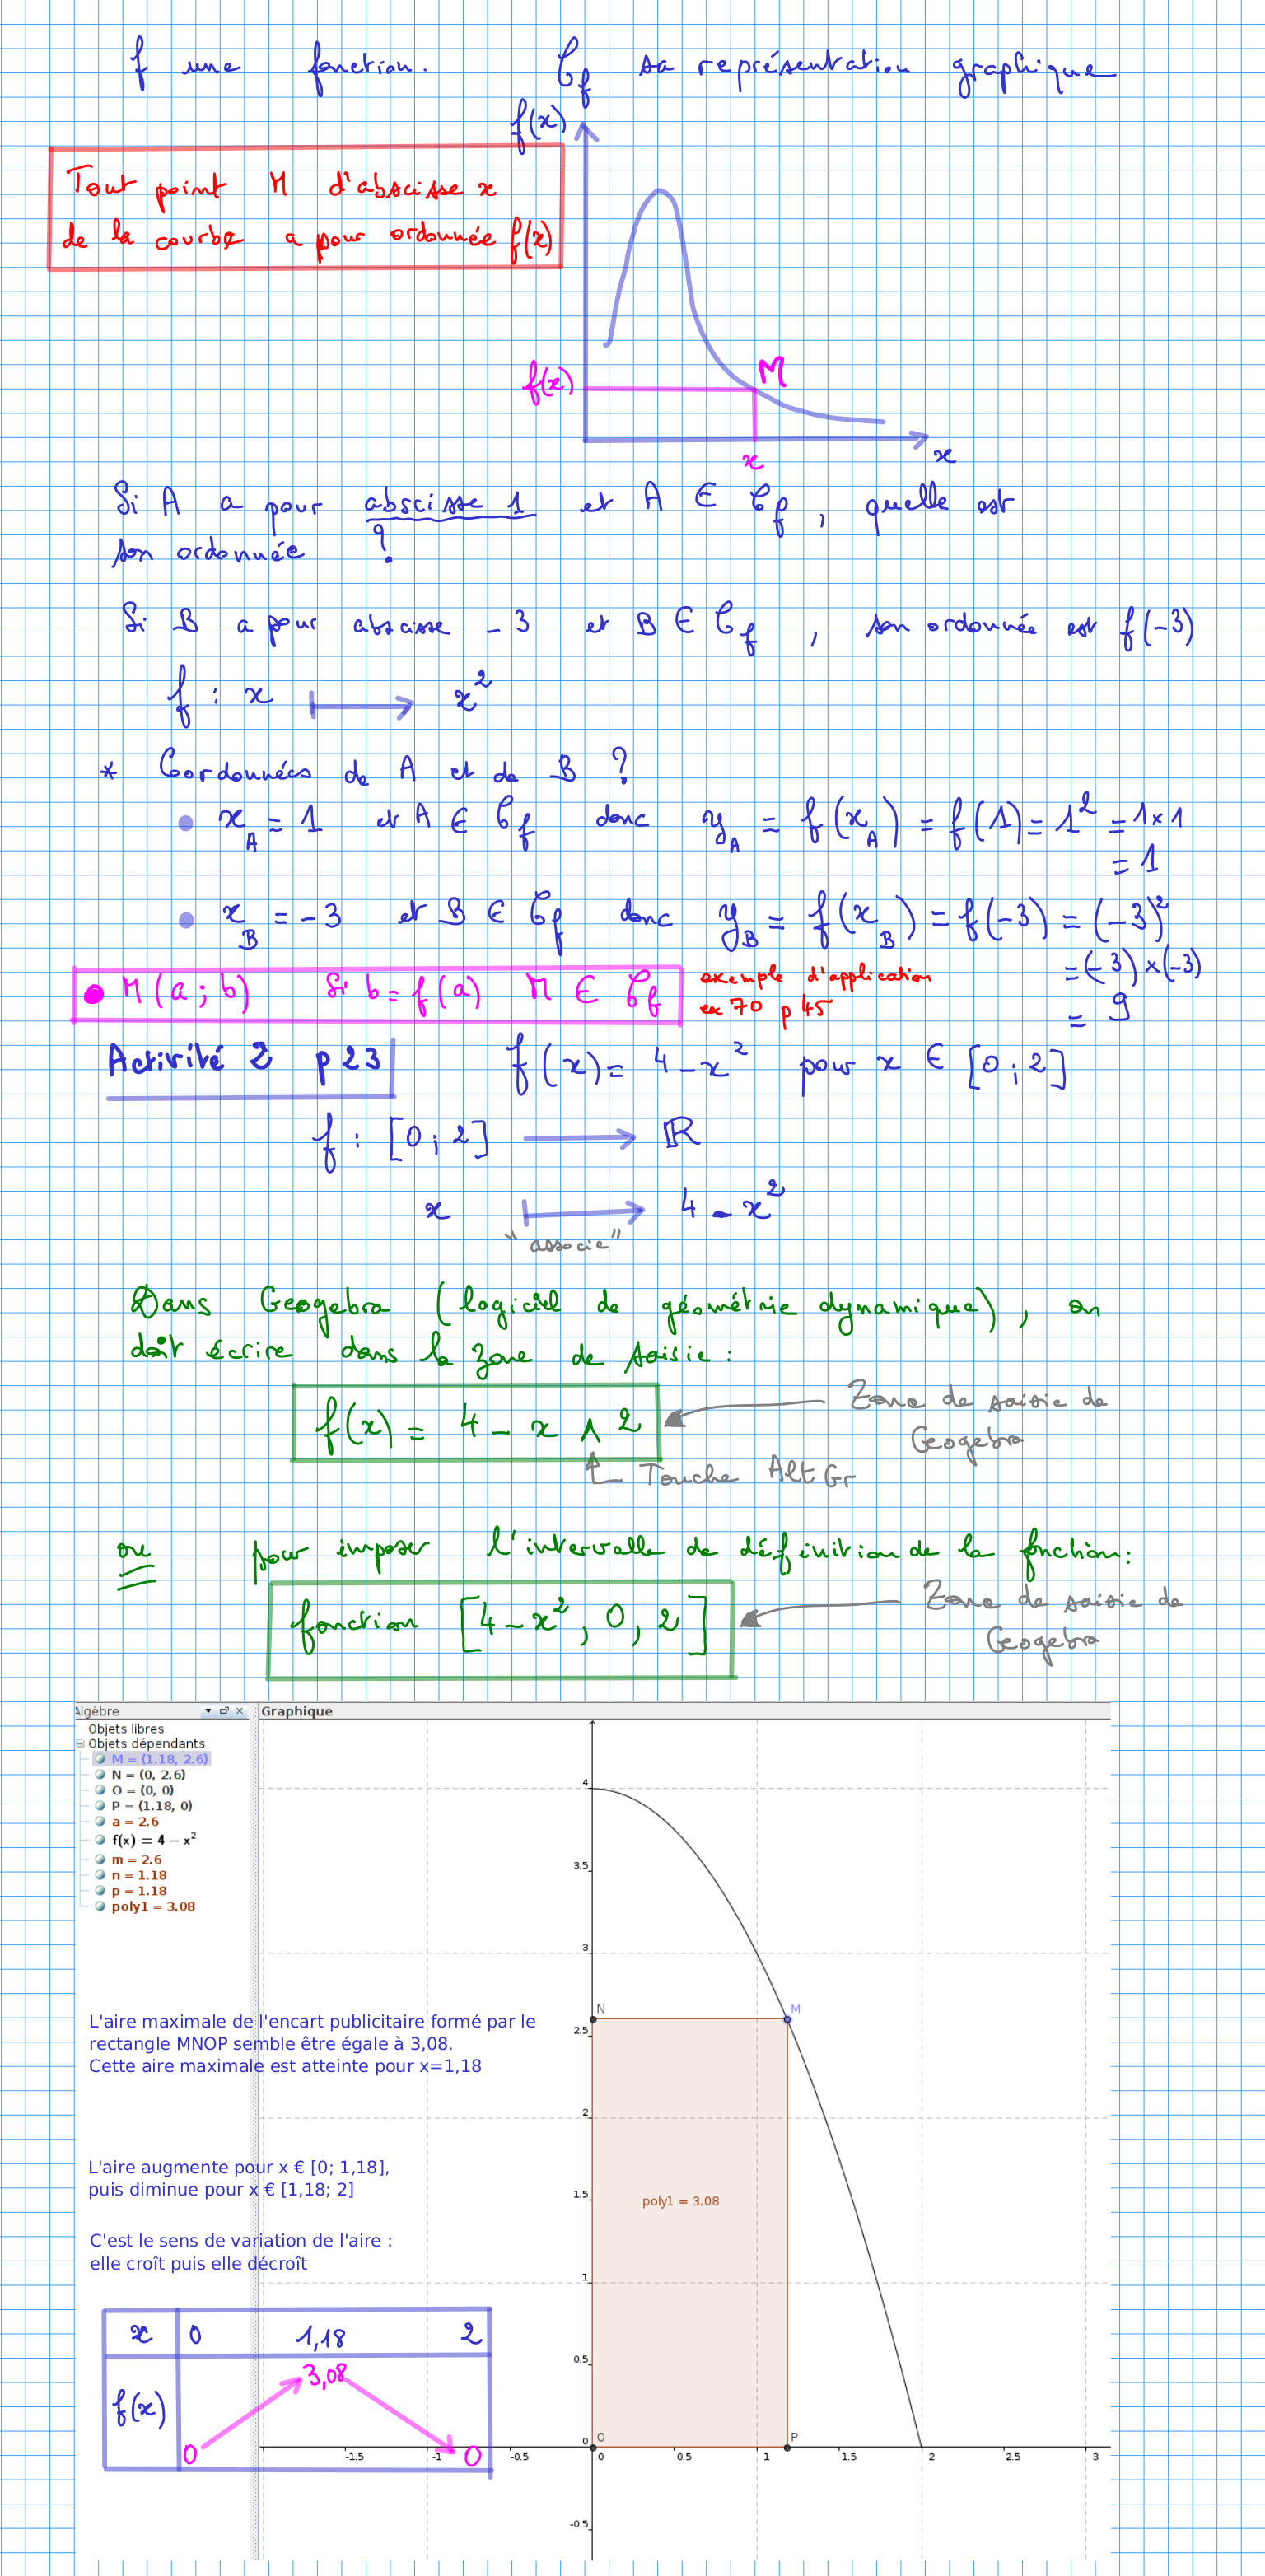 f une fonction. 𝒞f sa représentation graphique
f(x)
Tout point M d'abscisse x
de la courbe a pour ordonnée f(x)
f(x) M
x x
Si A a pour abscisse 1 et A ∈ 𝒞f , quelle est
son ordonnée ?
Si B a pour abscisse -3 et B ∈ 𝒞f , son ordonnée est f(-3)
f : x ⟼ x²
* Coordonnées de A et de B ?
• x_A = 1 et A ∈ 𝒞f donc y_A = f(x_A) = f(1) = 1² = 1×1
= 1
• x_B = -3 et B ∈ 𝒞f donc y_B = f(x_B) = f(-3) = (-3)²
= (-3)×(-3)
= 9
• M(a ; b) Si b = f(a) M ∈ 𝒞f
exemple d'application
ex 70 p 45
Activité 2 p23 f(x) = 4 - x² pour x ∈ [0 ; 2]
f : [0 ; 2] ⟶ ℝ
x ⟼ 4 - x²
"associe"
Dans Geogebra (logiciel de géométrie dynamique), on
doit écrire dans la zone de saisie :
f(x) = 4 - x ^ 2
Zone de saisie de
Geogebra
Touche Alt Gr
ou pour imposer l'intervalle de définition de la fonction :
fonction [4 - x² , 0 , 2]
Zone de saisie de
Geogebra
Algèbre
Graphique
Objets libres
Objets dépendants
M = (1.18, 2.6)
N = (0, 2.6)
O = (0, 0)
P = (1.18, 0)
a = 2.6
f(x) = 4 − x²
m = 2.6
n = 1.18
p = 1.18
poly1 = 3.08
L'aire maximale de l'encart publicitaire formé par le
rectangle MNOP semble être égale à 3,08.
Cette aire maximale est atteinte pour x=1,18
L'aire augmente pour x € [0; 1,18],
puis diminue pour x € [1,18; 2]
C'est le sens de variation de l'aire :
elle croît puis elle décroît
x 0 1,18 2
3,08
f(x)
0 0
4
3.5
3
N M
2.5
2
1.5
poly1 = 3.08
1
0.5
0 O P
-1.5 -1 -0.5 0 0.5 1 1.5 2 2.5 3
-0.5